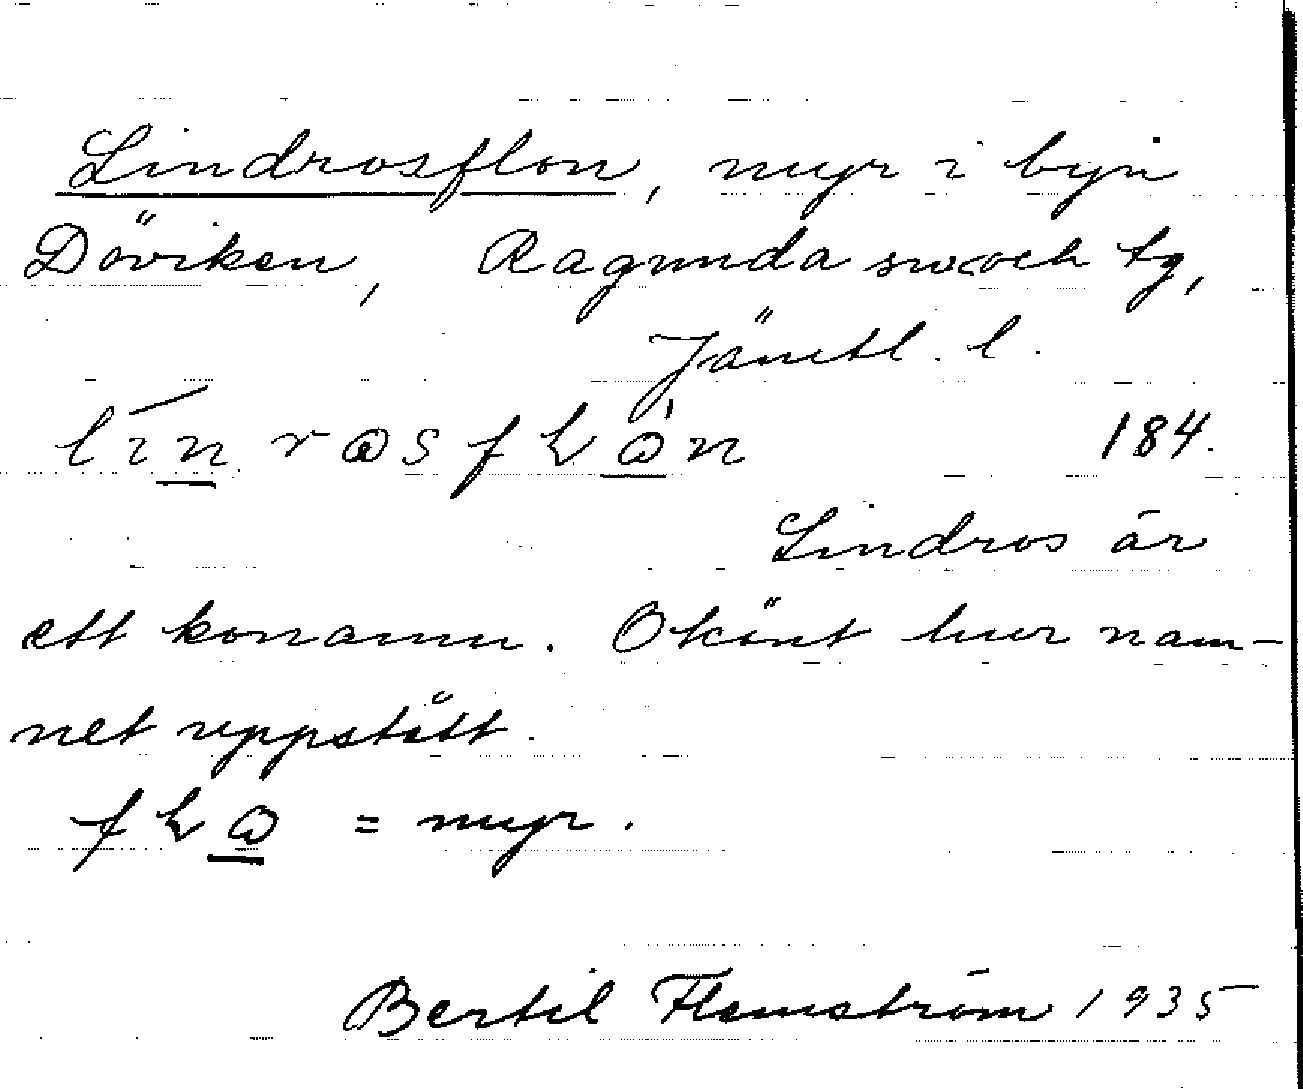 Lindrosflon, myr i byn
Döviken, Ragunda sn och tg,
Jämtl. l.
184.
Lindros är
ett konamn. Okänt hur nam-
net uppstått.
= myr.
Bertil Flemström 1935